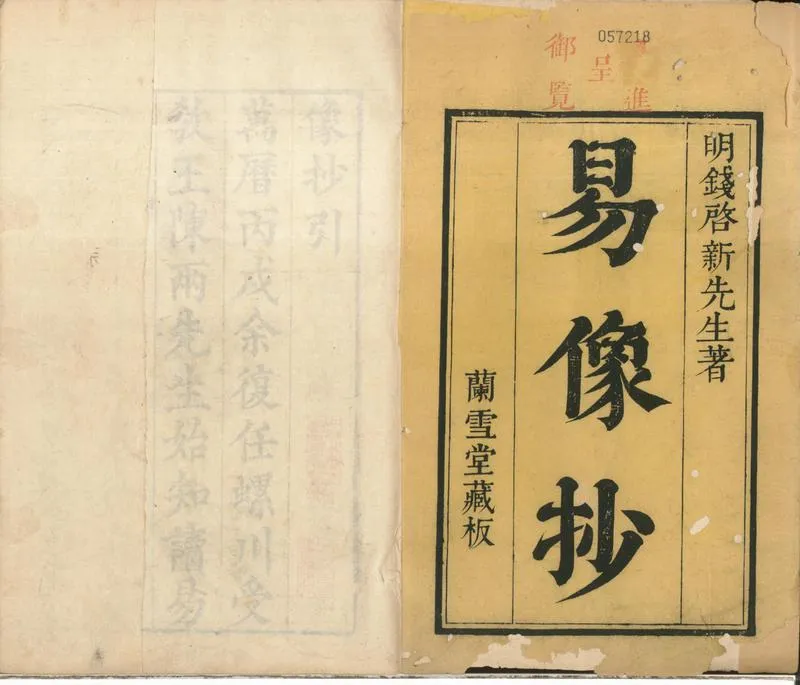 057218
進
呈
御覽
明錢啓新先生著
易像抄
蘭雪堂藏板
像抄引
萬曆丙戌余復任螺川受
教王陳兩先生始知讀易